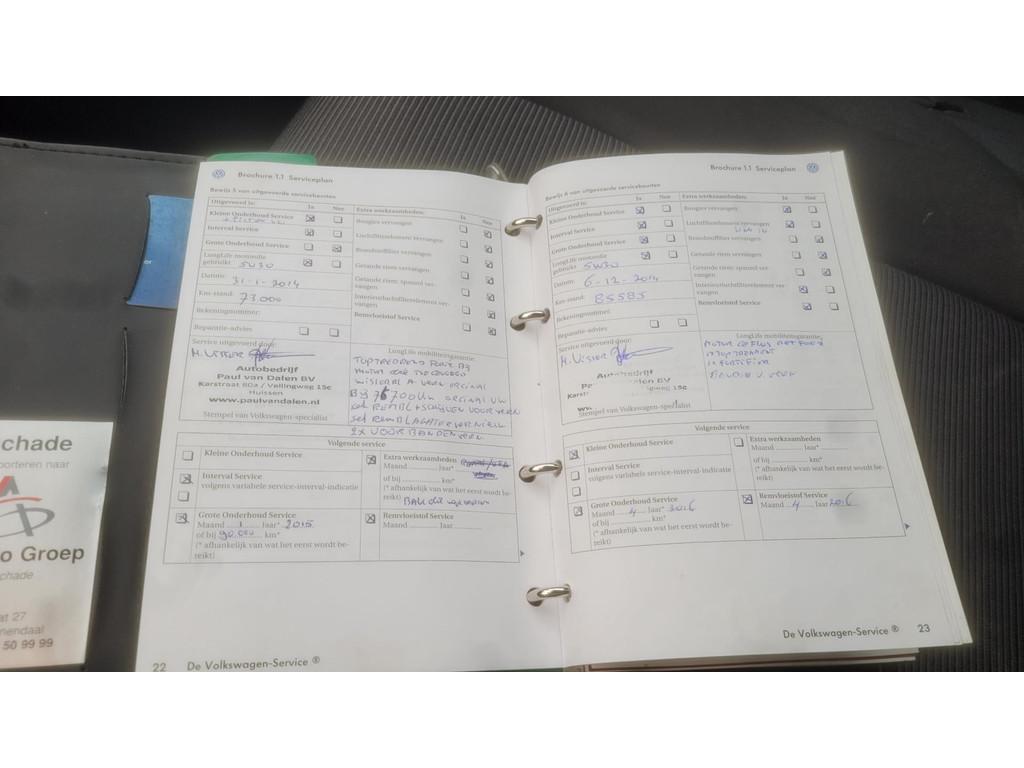 Brochure 1.1 Serviceplan
Bewijs 5 van uitgevoerde servicebeurten
Uitgevoerd is: Ja Nee
Kleine Onderhoud Service
Interval Service
Grote Onderhoud Service
LongLife motorolie
gebruikt 5W30
Datum: 31-1-2014
Km-stand: 73.000
Rekeningnummer:
Reparatie-advies
Service uitgevoerd door:
M. Visser
Autobedrijf
Paul van Dalen BV
Karstraat 80a / Vellingweg 15c
Huissen
www.paulvandalen.nl
Stempel van Volkswagen-specialist
Extra werkzaamheden: Ja Nee
Bougies vervangen
Luchtfilterelement vervangen
Brandstoffilter vervangen
Getande riem vervangen
Getande riem: spanrol ver-
vangen
Interieurluchtfilterelement ver-
vangen
Remvloeistof Service
LongLife mobiliteitsgarantie
MOTOR
A. VEER ORGINAL
ORGINAL VW
set REMBL + SCHIJVEN VOOR VERN
set REMBL ACHTER
2x VOORBANDEN
Volgende service
Kleine Onderhoud Service
Interval Service
volgens variabele service-interval-indicatie
Grote Onderhoud Service
Maand 1 Jaar* 2015
of bij 90.000 km*
(* afhankelijk van wat het eerst wordt be-
reikt)
Extra werkzaamheden
Maand Jaar*
of bij km*
(* afhankelijk van wat het eerst wordt be-
reikt)
Remvloeistof Service
Maand Jaar
22 De Volkswagen-Service ®
Brochure 1.1 Serviceplan
Bewijs 6 van uitgevoerde servicebeurten
Uitgevoerd is: Ja Nee
Kleine Onderhoud Service
Interval Service
Grote Onderhoud Service
LongLife motorolie
gebruikt 5W30
Datum: 6-12-2014
Km-stand: 85585
Rekeningnummer:
Reparatie-advies
Service uitgevoerd door:
M. Visser
Autobedrijf
DALEN BV
Karst weg 15c
ww.
Stempel van Volkswagen-specialist
Extra werkzaamheden: Ja Nee
Bougies vervangen
Luchtfilterelement vervangen
Brandstoffilter vervangen
Getande riem vervangen
Getande riem: spanrol ver-
vangen
Interieurluchtfilterelement ver-
vangen
Remvloeistof Service
LongLife mobiliteitsgarantie
MOTOR
Volgende service
Kleine Onderhoud Service
Interval Service
volgens variabele service-interval-indicatie
Grote Onderhoud Service
Maand 4 Jaar* 2016
of bij km*
(* afhankelijk van wat het eerst wordt be-
reikt)
Extra werkzaamheden
Maand Jaar*
of bij km*
(* afhankelijk van wat het eerst wordt be-
reikt)
Remvloeistof Service
Maand 4 Jaar 2016
De Volkswagen-Service ® 23
schade
porteren naar
o Groep
chade
at 27
nendaal
50 99 99